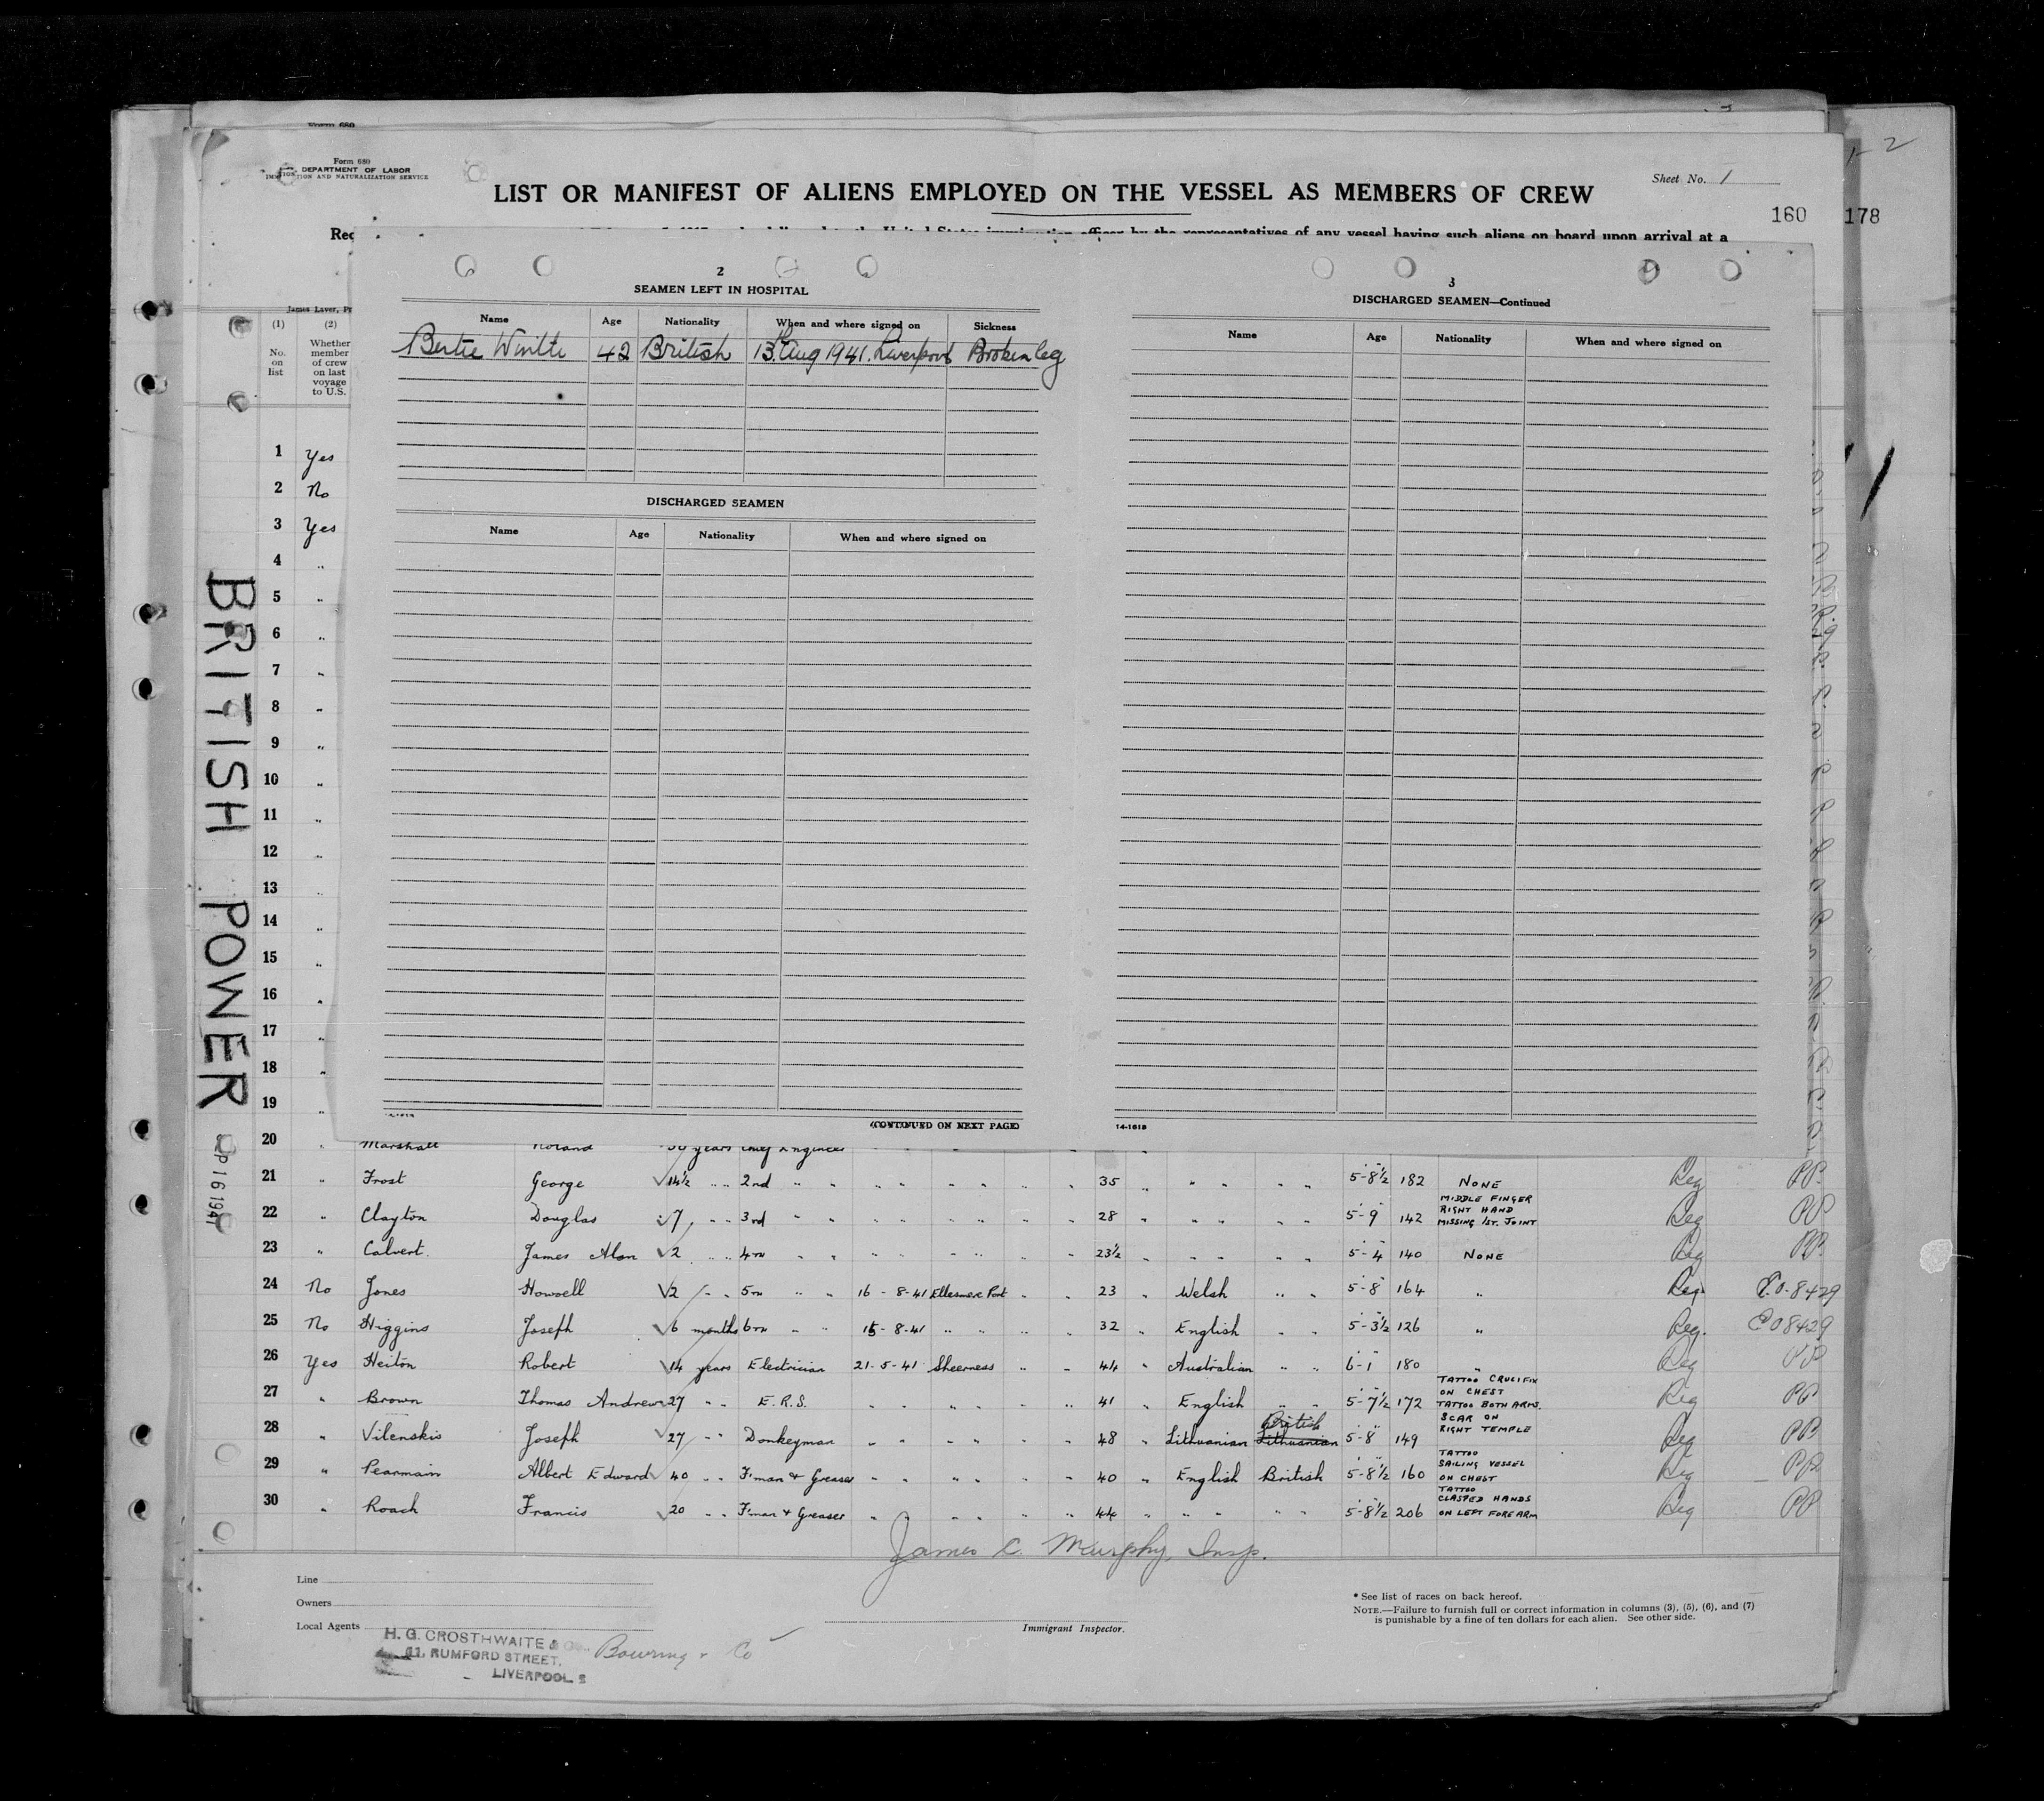 Form 680
DEPARTMENT OF LABOR
AND NATURALIZATION SERVICE
Sheet No. 1
LIST OR MANIFEST OF ALIENS EMPLOYED ON THE VESSEL AS MEMBERS OF CREW
160 178
of any vessel having such aliens on board upon arrival at a
2
SEAMEN LEFT IN HOSPITAL
Name Age Nationality When and where signed on Sickness
Bertie 42 British 13th Aug 1941. Liverpool Broken leg
DISCHARGED SEAMEN
Name Age Nationality When and where signed on
(CONTINUED ON NEXT PAGE)
3
DISCHARGED SEAMEN—Continued
Name Age Nationality When and where signed on
14-1618
(1) (2)
No. on list
Whether member of crew on last voyage to U.S.
1 Yes
2 No
3 Yes
4 "
5 "
6 "
7 "
8 "
9 "
10 "
11 "
12 "
13 "
14 "
15 "
16 "
17 "
18 "
19 "
BRITISH POWER
20 " Marshall Roland years Chief Engineer
21 " Frost George 14½ " " 2nd " " " " " " " " 35 " " " " " 5-8½ 182 NONE Reg PP.
22 " Clayton Douglas 7 " " 3rd " " " " " " " " 28 " " " " " 5-9 142 MIDDLE FINGER RIGHT HAND MISSING 1ST. JOINT Reg PP
23 " Calvert James Alan 2 " " 4TH " " " " " " " " 23½ " " " " " 5-4 140 NONE Reg PP.
24 No Jones Howell 2 " " 5TH " " 16-8-41 Ellesmere Port " " 23 " Welsh " " 5-8 164 " Reg. C.O.8429
25 No Higgins Joseph 6 months 6TH " " 15-8-41 " " " " 32 " English " " 5-3½ 126 " Reg. CO8429
26 Yes Heiton Robert 14 years Electrician 21-5-41 Sheerness " " 44 " Australian " " 6-1 180 " Reg PP
27 " Brown Thomas Andrew 27 " " E.R.S. " " " " " " 41 " English " " 5-7½ 172 TATTOO CRUCIFIX ON CHEST TATTOO BOTH ARMS. Reg PP
28 " Vilenskis Joseph 27 " " Donkeyman " " " " " " 48 " Lithuanian Lithuanian British 5-8 149 SCAR ON RIGHT TEMPLE Reg PP
29 " Pearmain Albert Edward 40 " " F'man & Greaser " " " " " " 40 " English British 5-8½ 160 TATTOO SAILING VESSEL ON CHEST Reg PP
30 " Roach Francis 20 " " F'man & Greaser " " " " " " 44 " " " " " 5-8½ 206 TATTOO CLASPED HANDS ON LEFT FOREARM Reg PP
James C. Murphy, Insp.
Immigrant Inspector.
Line
Owners
Local Agents
H. G. CROSTHWAITE &
11, RUMFORD STREET,
LIVERPOOL
Bowring & Co
* See list of races on back hereof.
NOTE.—Failure to furnish full or correct information in columns (3), (5), (6), and (7)
is punishable by a fine of ten dollars for each alien. See other side.